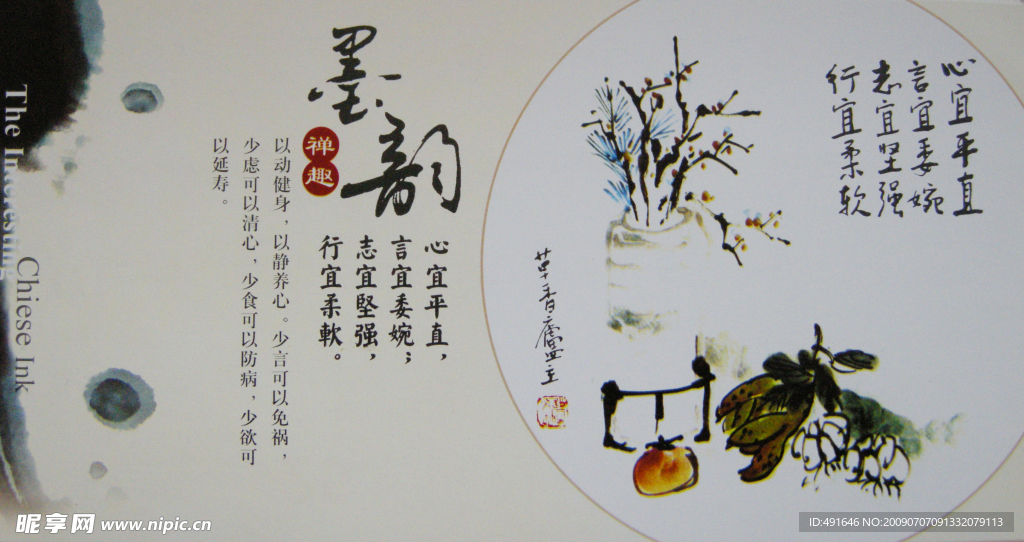 心宜平直
言宜委婉
志宜坚强
行宜柔软
草香廬主
墨韵
禅趣
心宜平直，
言宜委婉；
志宜堅强，
行宜柔軟。
以动健身，以静养心。少言可以免祸，
少虑可以清心，少食可以防病，少欲可
以延寿。
The Interesting
Chiese Ink
昵享网 www.nipic.cn
ID:491646 NO:20090707091332079113